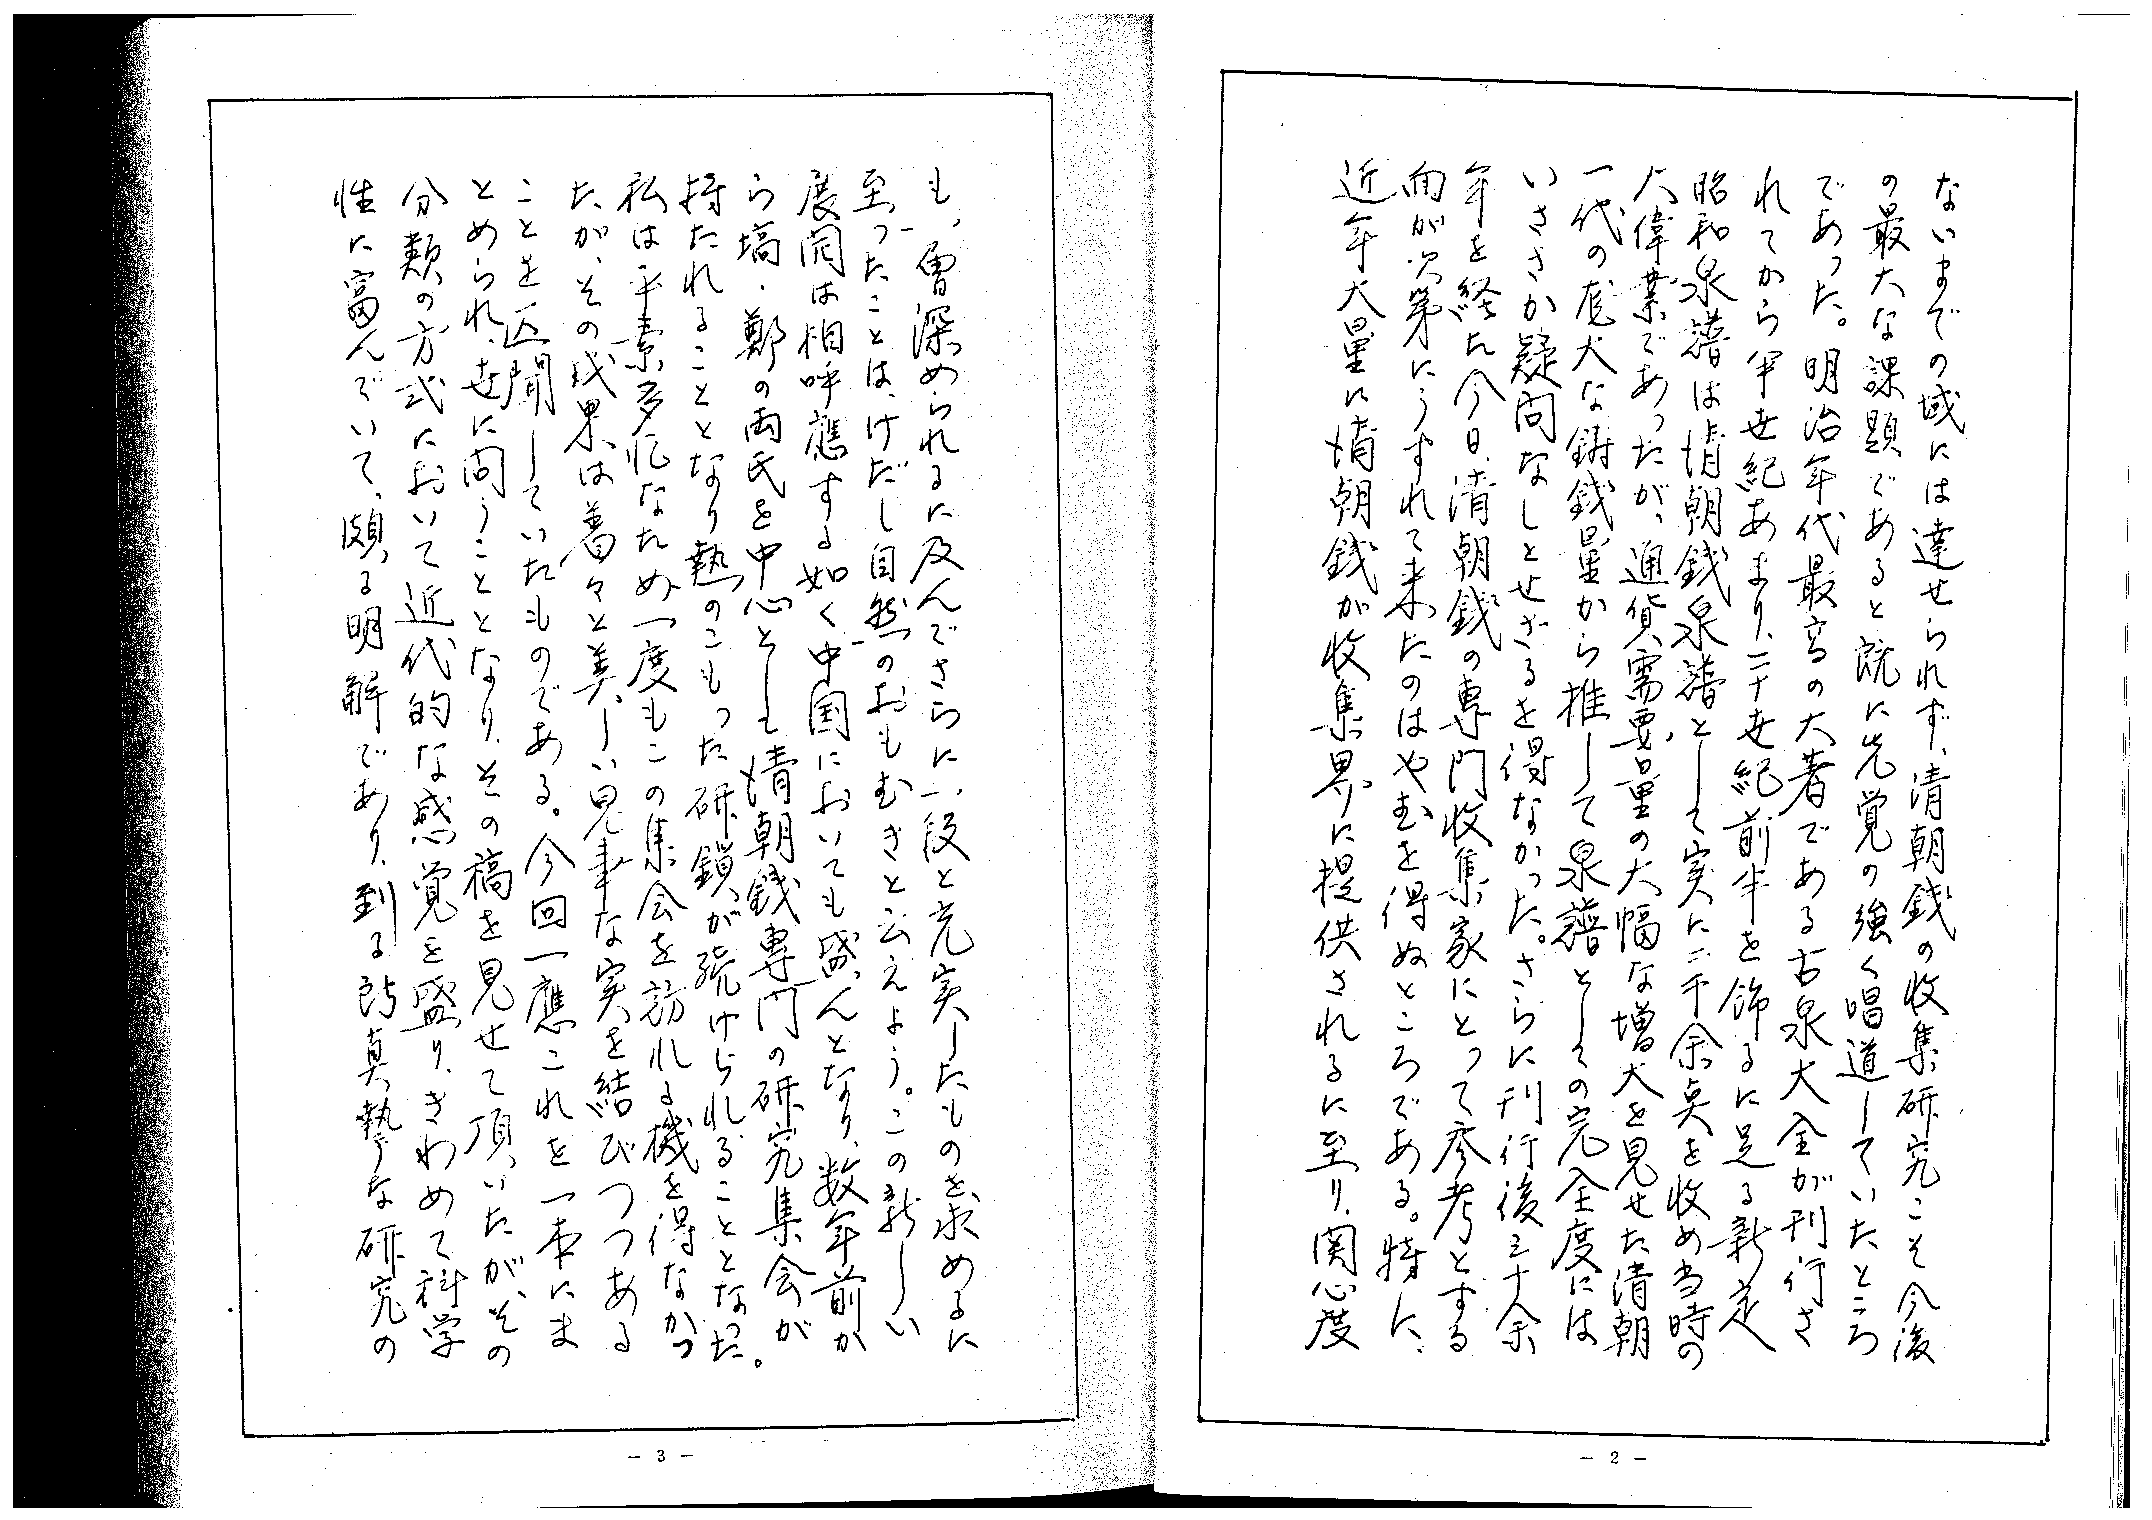 ないまでの域には達せられず、清朝銭の收集研究こそ今後
の最大な課題であると既に先覚の強く唱道していたところ
であった。明治年代最高の大著である古泉大全が刊行さ
れてから半世紀あまり、二十世紀前半を飾るに足る新撰
昭和泉譜は清朝銭泉譜として実に二千余点を收め当時の
大偉業であったが、通貨需要量の大幅な増大を見せた清朝
一代の尨大な鋳銭量から推して泉譜としての完全度には
いささか疑问なしとせざるを得なかった。さらに刊行後三十余
年を経た今日、清朝銭の専門收集家にとって参考とする
面が次第にうすれて来たのはやむを得ぬところである。特に、
近年大量に清朝銭が收集界に提供されるに至り、関心度
- 2 -
も、層深められるに及んでさらに一段と充実したものを求めるに
至ったことは、けだし自然のおもむきと云えよう。この新しい
展開は相呼應する如く中国においても盛んとなり、数年前か
ら塙、鄭の両氏を中心としも清朝銭専門の研究集会が
持たれることとなり熱のこもった研鑽が続けられることとなった。
私は平素多忙なため一度もこの集会を訪れる機を得なかっ
たが、その成果は着々と美しい見事な実を結びつつある
ことを仄聞していたものである。今回一應これを一本にま
とめられ、世に问うこととなり、その稿を見せて頂いたが、その
分類の方式において近代的な感覚を盛り、きわめて科学
性に富んでいて、頗る明解であり、到る所真摯な研究の
- 3 -